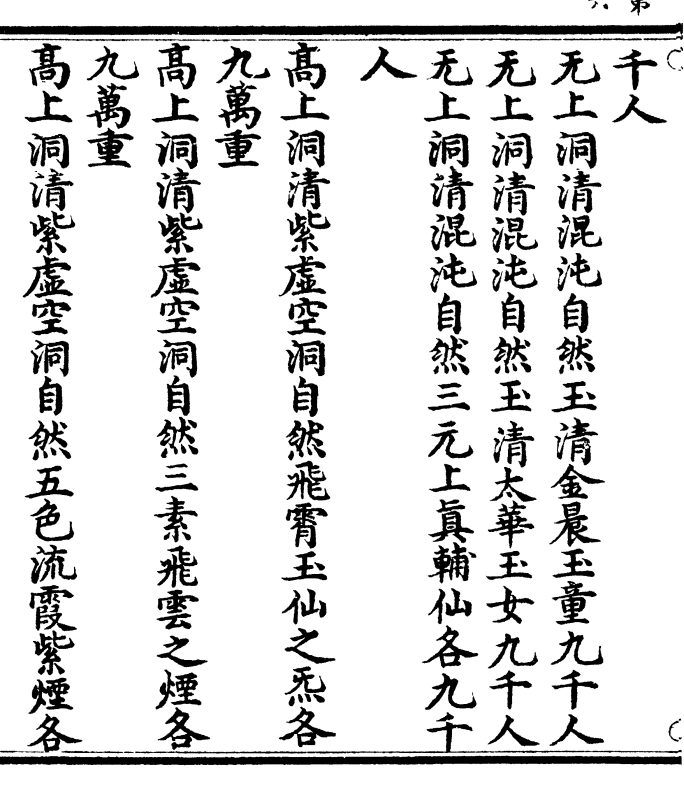 千人
无上洞清混沌自然玉清金晨玉童九千人
无上洞清混沌自然玉清太華玉女九千人
无上洞清混沌自然三元上真輔仙各九千
人
髙上洞清紫虛空洞自然飛霄玉仙之炁各
九萬重
髙上洞清紫虛空洞自然三素飛雲之煙各
九萬重
髙上洞清紫虛空洞自然五色流霞紫煙各